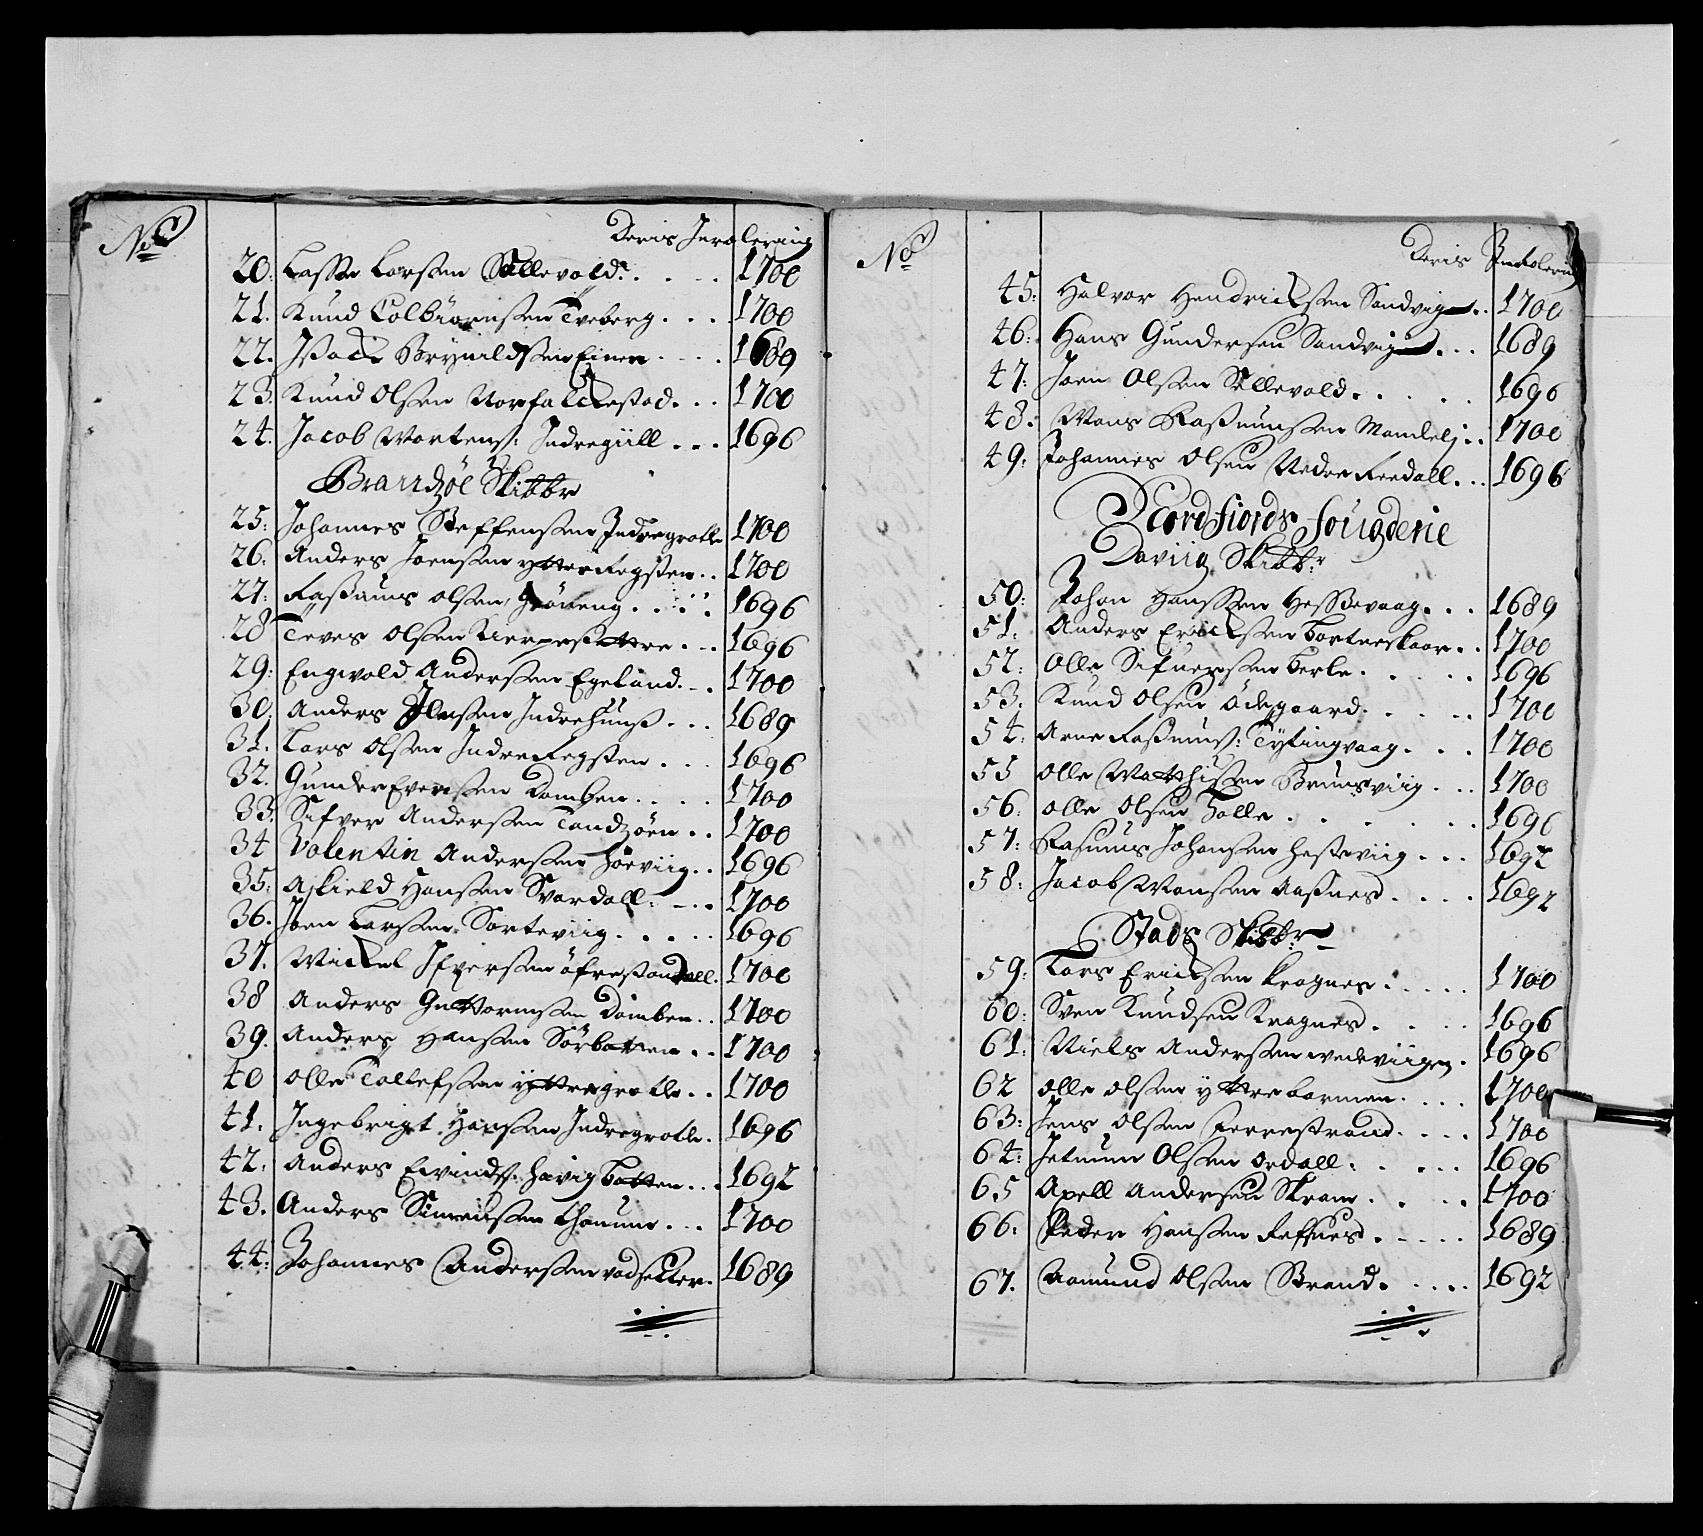 No
Deris Inrolering
20: Lasse Larsen Sellevold. 1700
21. Knud Colbiørnsen Tveberg. 1700
22. Isack Brynildsen Einen 1689
23. Knud Olsen Norfalckestad. 1700
24. Jacob Mortens: Indregiill 1696
Brandzøe Skibbr
25: Johannes Steffensen Indregrotle 1700
26. Anders Joensen ytterRegsten 1700
27: Rassmus olsen Grøneng 1696
28 Teves olsen 1696
29: Engvold Andersen Egeland 1700
30: Anders Jensen Indrehuus 1689
31. Lars olsen IndreRegsten 1696
32. Gunder Eversen Domben 1700
33. Sifver Andersen Tandzøen 1700
34 Valentin Andersen Hørviig 1696
35: Askield Hansen Svardall 1700
36. Joen Larsen Sorteviig 1696
37. Mickel Ifversen øfrestandall 1700
38 Anders Guttormsen Domben 1700
39. Anders Hansen Sørbotten 1700
40 olle Tollefsen yttregrotle 1700
41. Ingebrigt Hansen Indregrotle. 1696
42: Anders Eivinds: Høvig Botten 1692
43. Anders Simensen 1700
44: Johannes Andersen vadsetter. 1689
No
Deris Inrolering
45: Halvor Hendricksen Sandvigen 1700
46: Hans Gundersen Sandvigen 1689
47: Joen Olsen Sellevold 1696
48: Mons Rasmussen 1700
49: Johannes Olsen Nedre Rendall 1696
Nordfiords fougderie
Daviig Skibb:r
50: Johan Hanssen Hessevaag 1689
51: Anders Ericksen Bortneskaar 1700
52: Olle Sifuersen Berle 1696
53. Knud Olsen Ødegaard 1700
54: Arne Rasmus: Tytingvaag 1700
55 olle Matthisen Bremsviig 1700
56. olle olsen Tolle 1696
57: Rasmus Johansen Hesteviig 1692
58: Jacob Monsen Aasnes 1692
Stads Skibb:r
59: Lars Ericksen Kragnes 1700
60: Sven Knudsen Kragnes 1696
61: Niels Andersen wedviigen 1696
62 olle olsen yttrebarmen 1700
63: Jens olsen Ferrestrand 1700
64: Jetmun Olsen ordall 1696
65 Axell Andersen Skram 1700
66: Peder Hansen Refsnes 1689
67. Aamund Olsen Strand. 1692